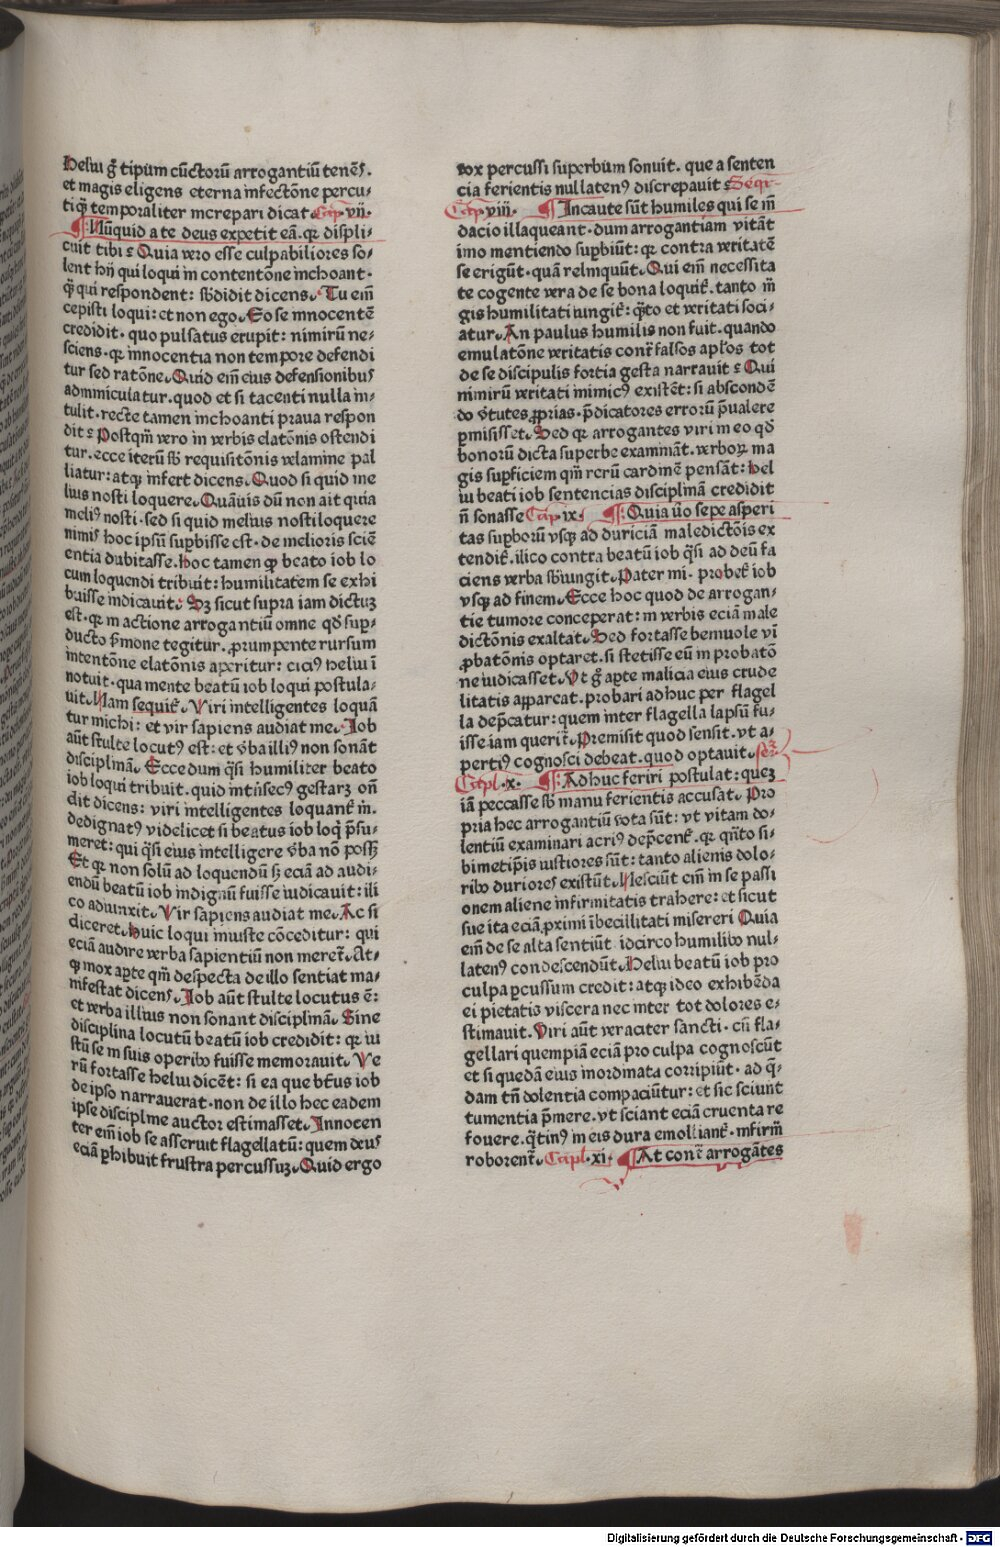 Heliu g̃ tipum cũctorũ arrogantiũ tenẽs.
et magis eligens eterna infectõne percu⸗
ti q̃ temporaliter increpari dicat Cap vii.
¶ Nũquid a te deus expetit eã. qꝛ displi⸗
cuit tibi? Quia vero esse culpabiliores so⸗
lent hij qui loqui in contentõne inchoant.
q̃ qui respondent: sb̃didit dicens. Tu em̃
cepisti loqui: et non ego. Eo se innocentẽ
credidit. quo pulsatus erupit: nimirũ ne⸗
sciens. qꝛ innocentia non tempore defendi
tur sed ratõne. Quid em̃ eius defensionibus
adminiculatur. quod et si tacenti nulla in⸗
tulit. recte tamen inchoanti praua respon
dit? Postqm̃ vero in verbis elatõnis ostendi
tur. ecce iterũ sb̃ requisitõnis velamine pal
liatur: atqꝫ infert dicens. Quod si quid me
lius nosti loquere. Quãuis dũ non ait quia
meliꝰ nosti. sed si quid melius nosti loquere
nimis hoc ipsũ suꝑbisse est. de melioris sciẽ
entia dubitasse. Hoc tamen ꝙ beato iob lo
cum loquendi tribuit: humilitatem se exhi
buisse indicauit. Sꝫ sicut supra iam dictuꝫ
est. qꝛ in actione arrogantiũ omne qd̃ suꝑ⸗
ducto s̃mone tegitur. ꝓrumpente rursum
intentõne elatõnis aperitur: ciciꝰ heliu ĩ
notuit. qua mente beatũ iob loqui postula⸗
uit. Nam sequit̃. Viri intelligentes loquã
tur michi: et vir sapiens audiat me. Iob
aũt stulte locutꝰ est: et v̓ba illiꝰ non sonãt
disciplinã. Ecce dum q̃si humiliter beato
iob loqui tribuit. quid intrĩsecꝰ gestarꝫ oñ
dit dicens: viri intelligentes loquant̃ m̃.
dedignatꝰ videlicet si beatus iob loq̃ p̃su⸗
meret: qui q̃si eius intelligere v̓ba nõ possꝫ
Et qꝛ non solũ ad loquendũ sꝫ eciã ad audi⸗
endũ beatũ iob indignũ fuisse iudicauit: ili
co adiunxit. Vir sapiens audiat me. Ac si
diceret. Huic loqui iniuste cõceditur: qui
eciã audire verba sapientiũ non meret̃. At⸗
qꝫ mox aꝑte qm̃ despecta de illo sentiat ma⸗
nifestat dicens. Iob aũt stulte locutus ẽ:
et verba illius non sonant disciplinã. Sine
disciplina locutũ beatũ iob credidit: qꝛ iu
stũ se in suis operibꝰ fuisse memorauit. Ve
rũ fortasse heliu dicẽt: si ea que bt̃us iob
de ipso narrauerat. non de illo hec eadem
ipse discipline auctor estimasset. Innocen
ter em̃ iob se asseruit flagellatũ: quem deus
eciã ꝑhibuit frustra percussuꝫ. Quid ergo
vox percussi superbium sonuit. que a senten
cia ferientis nullatenꝰ discrepauit? Sequi⸗
Cap viii. ¶ Incaute sũt humiles qui se in m̃
dacio illaqueant. dum arrogantiam vitãt
imo mentiendo suꝑbiũt: qꝛ contra veritatẽ
se erigũt. quã relinquũt. Qui em̃ necessita
te cogente vera de se bona loquit̃. tanto m̃
gis humilitati iungit̃: q̃to et veritati soci⸗
atur. An paulus humilis non fuit. quando
emulatõne veritatis cont̃ falsos apl̃os tot
de se discipulis fortia gesta narrauit? Qui
nimirũ veritati inimicꝰ existẽt: si abscondẽ
do v̓tutes ꝓprias. p̃dicatores errorũ p̃ualere
ꝑmisisset. Sed qꝛ arrogantes viri in eo qd̃
bonorũ dicta superbe examinãt. verboꝝ ma
gis suꝑficiem qm̃ rerũ cardinẽ pensãt: Hel
iu beati iob sentencias disciplinã credidit
ñ sonasse Cap ix. ¶ Quia v̓o sepe asperi
tas suꝑborũ vsqꝫ ad duriciã maledictõis ex
tendit̃. ilico contra beatũ iob q̃si ad deũ fa
ciens verba sb̃iungit. Pater mi. probet̃ iob
vsqꝫ ad finem. Ecce hoc quod de arrogan⸗
tie tumore conceperat: in verbis eciã male
dictõnis exaltat. Sed fortasse beniuole vĩ
ꝓbatõnis optaret. si stetisse eũ in probatõ
ne iudicasset. Vt g̃ aꝑte malicia eius crude
litatis appareat. probari adhuc per flagel
la dep̃catur: quem inter flagella lapsũ fu⸗
isse iam querit̃. Premisit quod sensit. vt a⸗
pertiꝰ cognosci debeat. quod optauit. Seqr̃
Capl. x. ¶ Adhuc feriri postulat: queꝫ
iã peccasse sb̃ manu ferientis accusat. Pro
pria hec arrogantiũ vota sũt: vt vitam do⸗
lentiũ examinari acriꝰ dep̃cent̃. qꝛ q̃nto si⸗
bimetip̃is iustiores sũt: tanto alienis dolo⸗
ribꝰ duriores existũt. Nesciũt em̃ in se passi
onem aliene infirmitatis trahere: et sicut
sue ita eciã ꝓximi ĩbecillitati misereri Quia
em̃ de se alta sentiũt idcirco humilibꝰ nul⸗
latenꝰ condescendũt. Heliu beatũ iob pro
culpa ꝑcussum credit: atqꝫ ideo exhibẽda
ei pietatis viscera nec inter tot dolores e⸗
stimauit. Viri aũt veraciter sancti. cũ fla⸗
gellari quempiã eciã pro culpa cognoscũt
et si quedã eius inordinata corripiũt. ad q̃⸗
dam tñ dolentia compaciũtur: et sic sciunt
tumentia p̃mere. vt sciant eciã cruenta re
fouere. q̃tinꝰ in eis dura emolliant̃. infirm̃
roborent̃. Capl. xi. ¶ At cont̃ arrogãtes
Digitalisierung gefördert durch die Deutsche Forschungsgemeinschaft - DFG